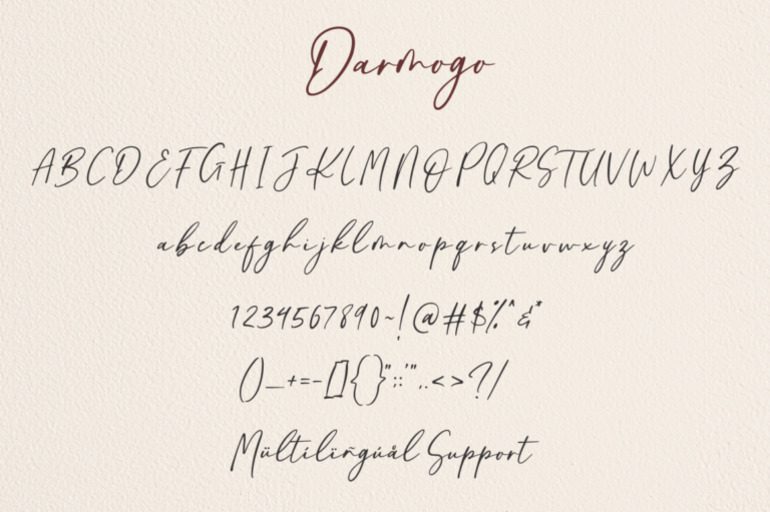 Darmogo
ABCDEFGHIJKLMNOPQRSTUVWXYZ
abcdefghijklmnopqrstuvwxyz
1234567890~!@#$%^&*
()_+=-[]{}";:'",.<>?/
Mültilïñgúål Support